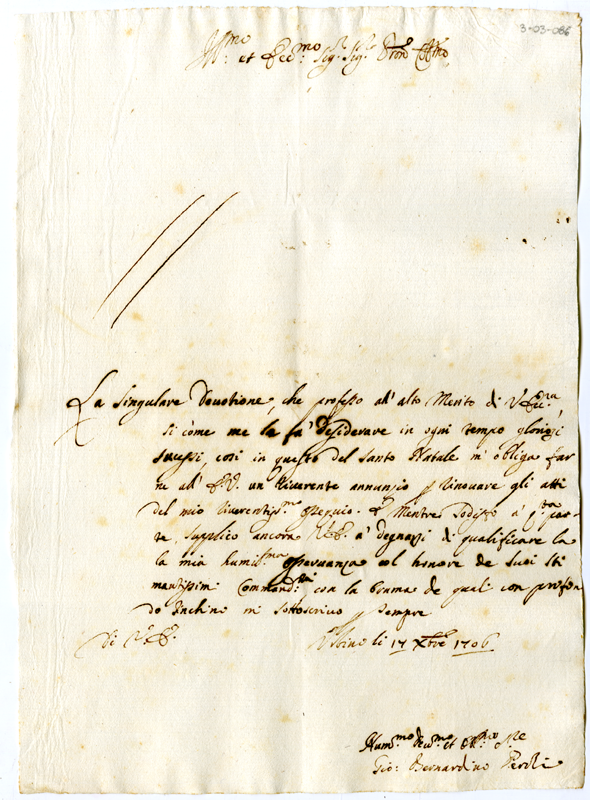 3-03-086
Ill.mo et Ecc.mo Sig.r Sig.r P.ron Col.mo
La singulare Devotione, che professo all' alto Merito di V. Ecc.za,
si come me la fa' desiderare in ogni tempo gloriosi
sucessi, così in questo del Santo Natale m' obliga far
ne all' E.V. un riverente annunzio p rinovare gli atti
del mio riverentiss.mo ossequio. E Mentre sodisfo a' q.ta par-
te, supplico ancora V.E. a' degnarsi di qualificare la
la mia humil.ma osservanza col honore de suoi sti
matissimi Commandi, con la brama de quali con profon
do Inchino mi sottoscrivo p sempre
Di V.E. Urbino li 17 Xbre 1706
Hum.mo Dev.mo et Obl.mo S.re
Gio: Bernardino